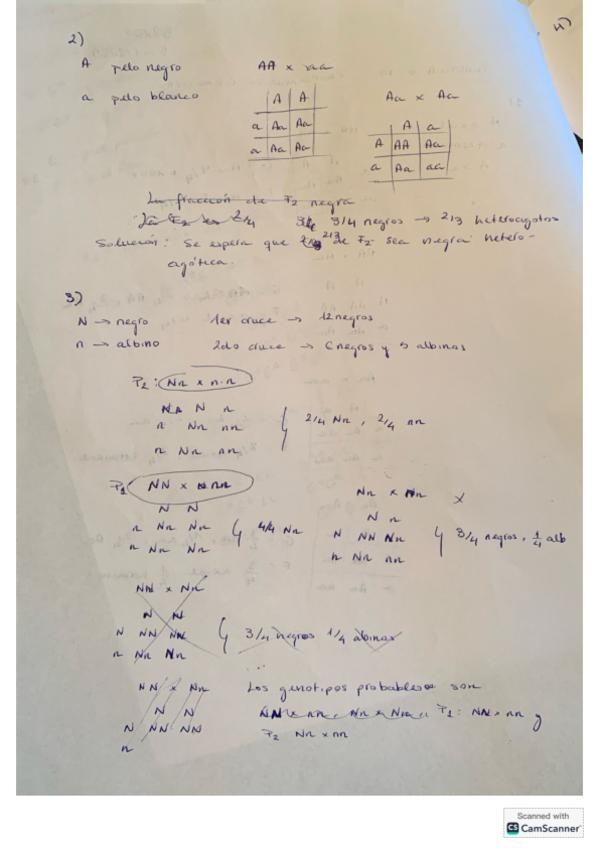 4)
2)
A pelo negro AA x aa
a pelo blanco Aa x Aa
A A
a Aa Aa
a Aa Aa
A a
A AA Aa
a Aa aa
La fracción de F2 negra
La F2 es 2/4 3/4 negros → 2/3 heterocigotos
Solución: Se espera que 2/3 de F2 sea negra hetero-
cigótica.
3)
N → negro 1er cruce → 12 negros
n → albino 2do cruce → 6 negros y 5 albinos
P2: Nn x n n
N n
n Nn nn
n Nn nn
2/4 Nn, 2/4 nn
P1 NN x nn
N N
n Nn Nn
n Nn Nn
4/4 Nn
Nn x Nn X
N n
N NN Nn
n Nn nn
3/4 negros, 1/4 alb
NN x Nn
N N
N NN NN
n Nn Nn
3/4 negros 1/4 albinos
...
NN x Nn
N N
N NN NN
n
Los genotipos probables son
NN x nn, Nn x Nn P1: NN x nn y
P2 Nn x nn
Scanned with
CS CamScanner